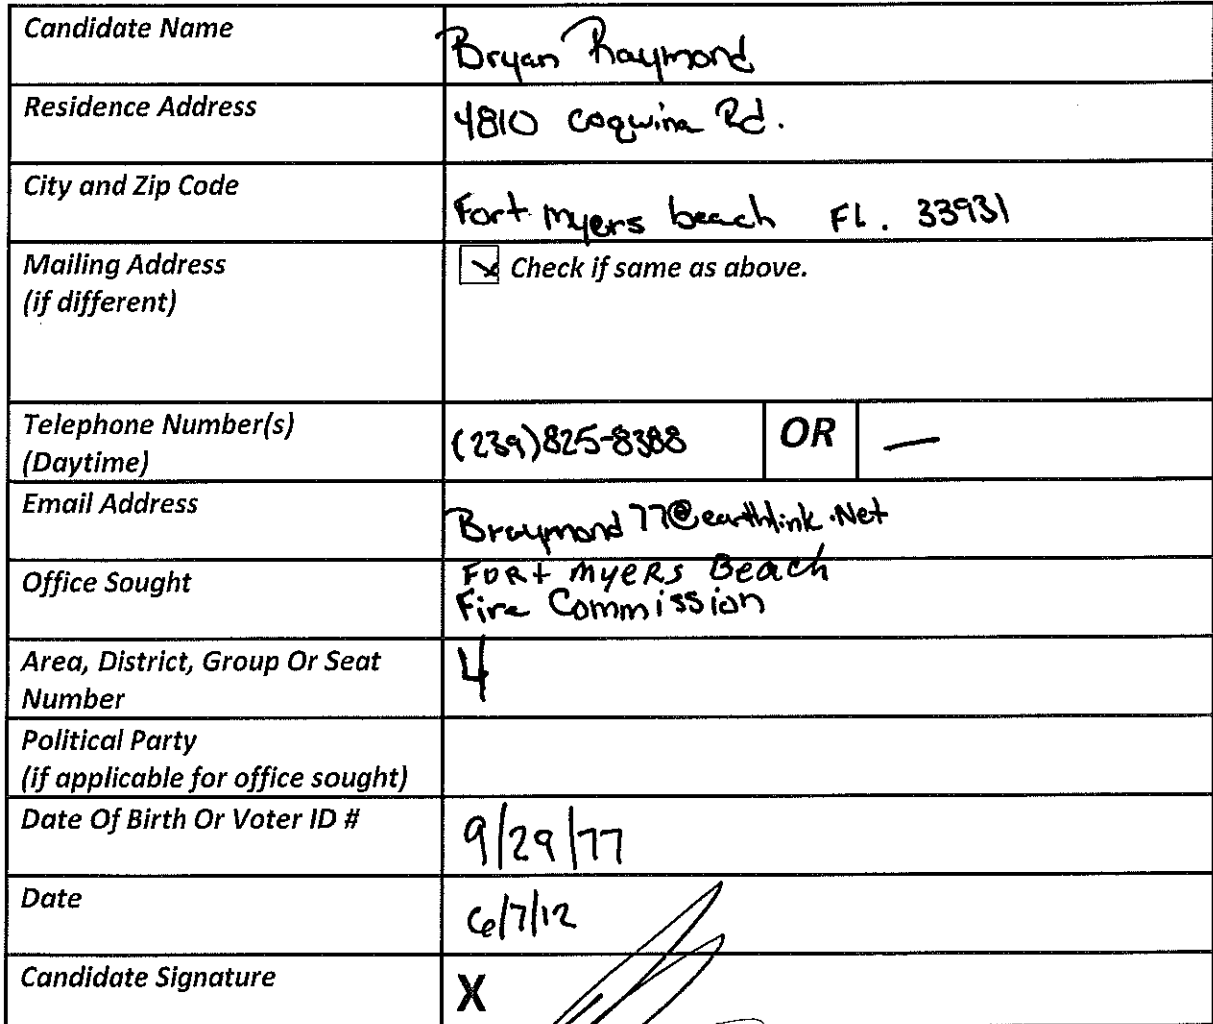 Candidate Name Bryan Raymond
Residence Address 4810 Coquina Rd.
City and Zip Code Fort Myers beach FL. 33931
Mailing Address
(if different)
Check if same as above.
Telephone Number(s)
(Daytime)
(239)825-8388 OR —
Email Address Braymond77@earthlink.Net
Office Sought
FORt MyeRs Beach
Fire Commission
Area, District, Group Or Seat
Number
4
Political Party
(if applicable for office sought)
Date Of Birth Or Voter ID # 9/29/77
Date 6/7/12
Candidate Signature X